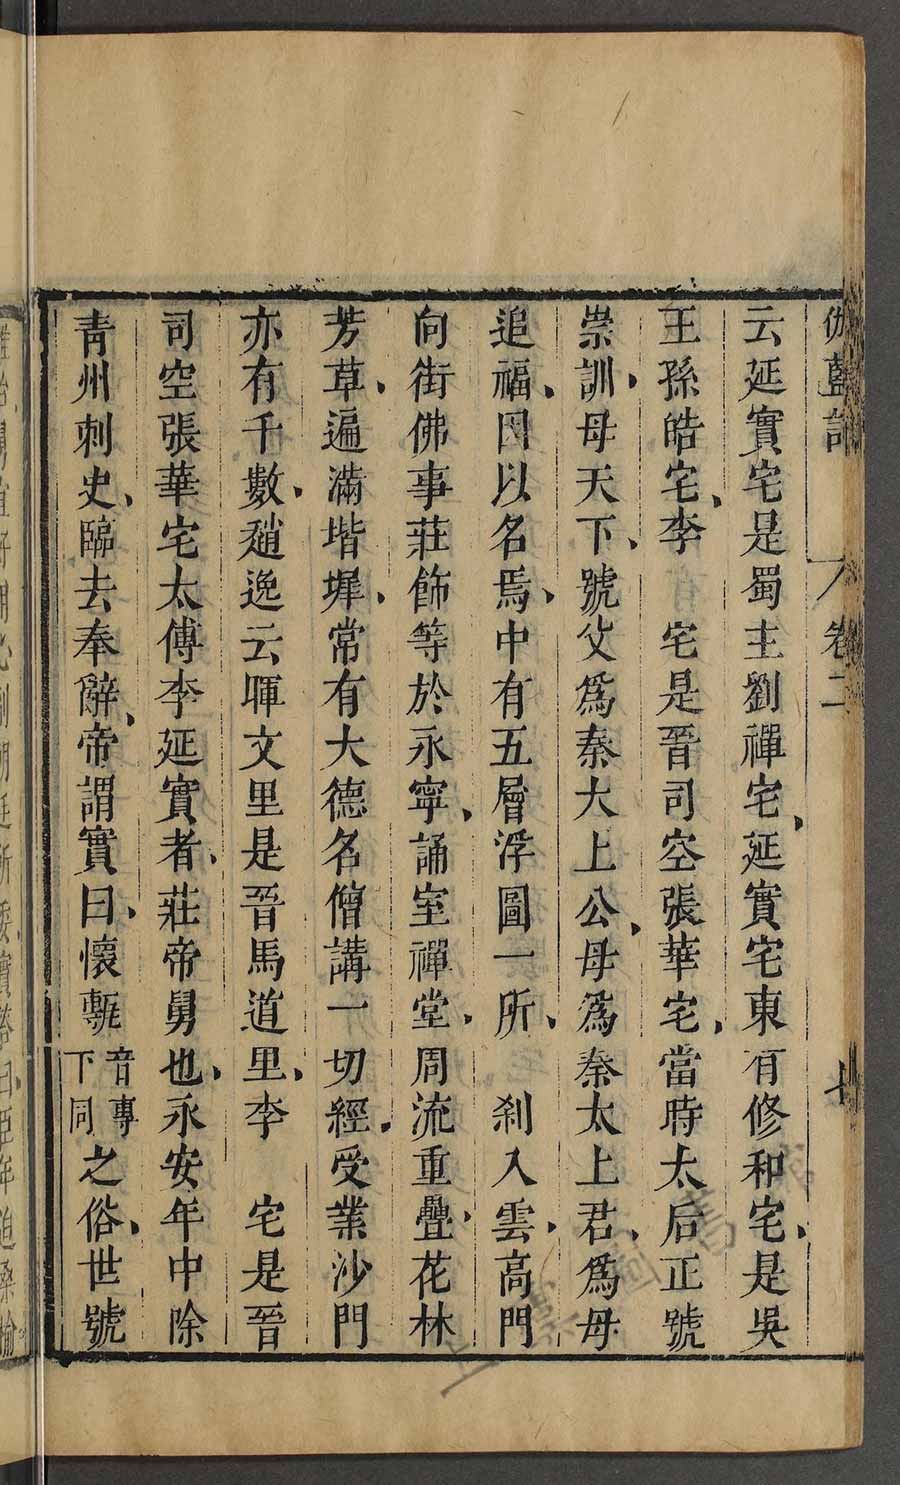 伽藍記 卷二 七
云延實宅是蜀主劉禪宅、延實宅東有修和宅、是吳
王孫皓宅、李　宅是晉司空張華宅、當時太后正號
崇訓、母天下、號父爲秦太上公、母爲秦太上君、爲母
追福、因以名焉、中有五層浮圖一所、　刹入雲、高門
向街佛事莊飾等於永寧、誦室禪堂、周流重疊、花林
芳草、遍滿堦墀、常有大德名僧講一切經、受業沙門
亦有千數、趙逸云暉文里是晉馬道里、李　宅是晉
司空張華宅太傅李延實者、莊帝舅也、永安年中除
青州刺史、臨去奉辭、帝謂實曰、懷甎音專下同之俗、世號